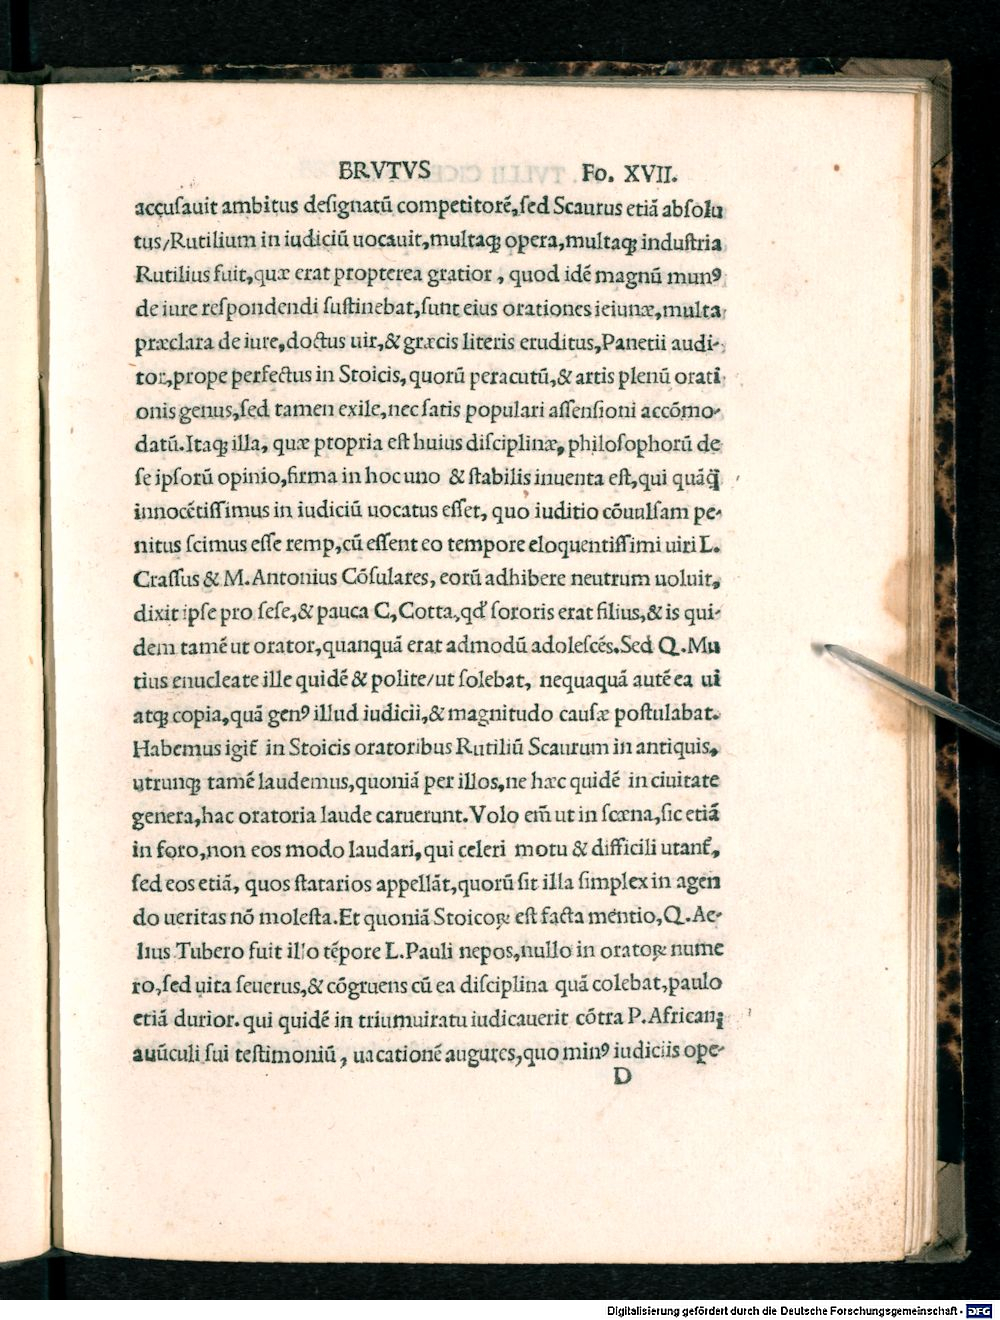 BRVTVS Fo. XVII.
accusauit ambitus designatū competitorē,sed Scaurus etiā absolu
tus/Rutilium in iudiciū uocauit,multaqꝫ opera,multaqꝫ industria
Rutilius fuit,quæ erat propterea gratior, quod idē magnū munꝰ
de iure respondendi sustinebat,sunt eius orationes ieiunæ,multa
præclara de iure,doctus uir,& græcis literis eruditus,Panetii audi-
tor,prope perfectus in Stoicis,quorū peracutū,& artis plenū orati
onis genus,sed tamen exile,nec satis populari assensioni accōmo-
datū.Itaqꝫ illa, quæ propria est huius disciplinæ, philosophorū de
se ipsorū opinio,firma in hoc uno & stabilis inuenta est,qui quāq̄
innocētissimus in iudiciū uocatus esset, quo iuditio cōuulsam pe-
nitus scimus esse remp,cū essent eo tempore eloquentissimi uiri L.
Crassus & M.Antonius Cōsulares, eorū adhibere neutrum uoluit,
dixit ipse pro sese,& pauca C,Cotta,qd' sororis erat filius,& is qui-
dem tamē ut orator,quanquā erat admodū adolescēs.Sed Q.Mu
tius enucleate ille quidē & polite/ut solebat, nequaquā autē ea ui
atqꝫ copia,quā genꝰ illud iudicii,& magnitudo causæ postulabat.
Habemus igit̄ in Stoicis oratoribus Rutiliū Scaurum in antiquis,
utrunqꝫ tamē laudemus,quoniā per illos,ne hæc quidē in ciuitate
genera,hac oratoria laude caruerunt.Volo em̄ ut in scœna,sic etiā
in foro,non eos modo laudari,qui celeri motu & difficili utant̄,
sed eos etiā, quos statarios appellāt,quorū sit illa simplex in agen
do ueritas nō molesta.Et quoniā Stoicoꝝ est facta mentio,Q.Ae-
lius Tubero fuit illo tēpore L.Pauli nepos,nullo in oratoꝝ nume
ro,sed uita seuerus,& cōgruens cū ea disciplina quā colebat,paulo
etiā durior.qui quidē in triumuiratu iudicauerit cōtra P.Africani
auūculi sui testimoniū, uacationē augures,quo minꝰ iudiciis ope-
D
Digitalisierung gefördert durch die Deutsche Forschungsgemeinschaft - DFG